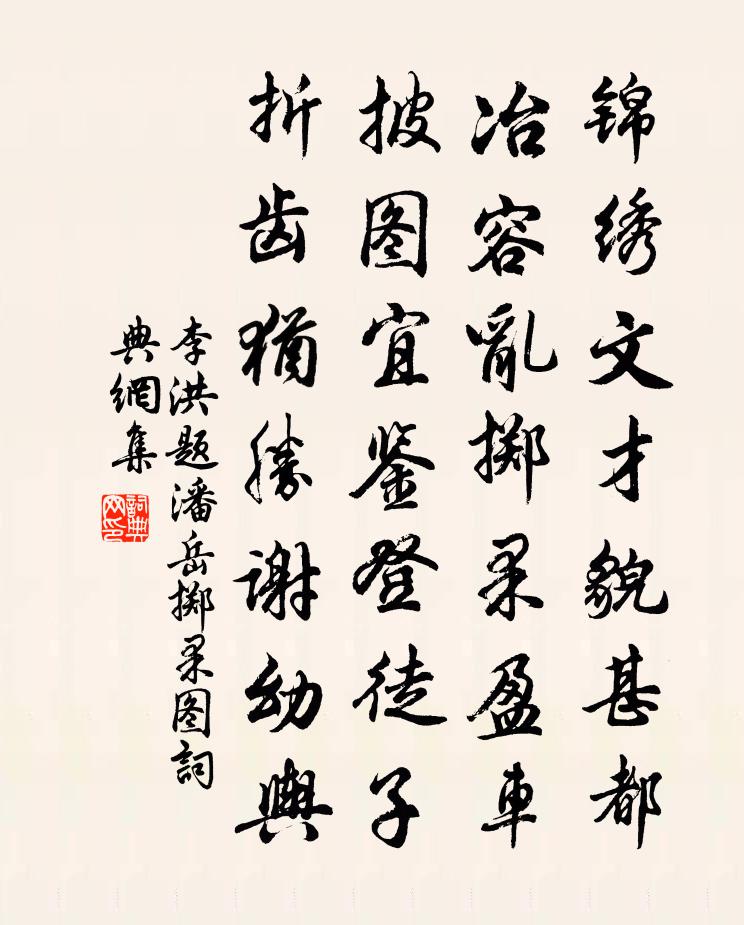 锦绣文才貌甚都
冶容亂掷果盈車
披图宜鉴登徒子
折齿猶勝谢幼輿
李洪题潘岳掷果图詞
典網集
詞典
网印